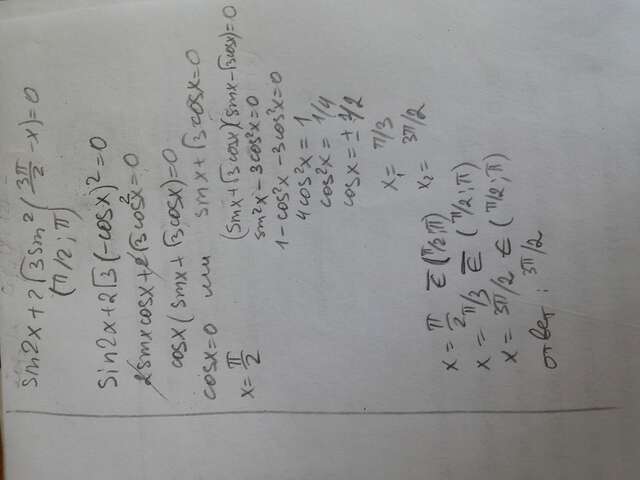 sin2x + 2√3 sin²(3π/2 - x) = 0
(π/2; π)
sin2x + 2√3(-cosx)² = 0
2sinxcosx + 2√3cos²x = 0
cosx(sinx + √3cosx) = 0
cosx = 0 или sinx + √3cosx = 0
x = π/2
(sinx + √3cosx)(sinx - √3cosx) = 0
sin²x - 3cos²x = 0
1 - cos²x - 3cos²x = 0
4cos²x = 1
cos²x = 1/4
cosx = ± 1/2
x₁ = π/3
x₂ = 3π/2
x = π/2 ∈̅ (π/2; π)
x = π/3 ∈̅ (π/2; π)
x = 3π/2 ∈ (π/2; π)
ответ: 3π/2